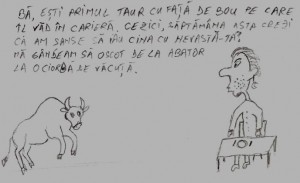 BĂ, EȘTI PRIMUL TAUR CU FAȚĂ DE BOU PE CARE
ÎL VĂD ÎN CARIERĂ. CE ZICI, SĂPTĂMÂNA ASTA CREZI
CĂ AM ȘANSE SĂ IAU CINA CU NEVASTĂ-TA?
MĂ GÂNDEAM SĂ O SCOT DE LA ABATOR
LA O CIORBĂ DE VĂCUȚĂ.